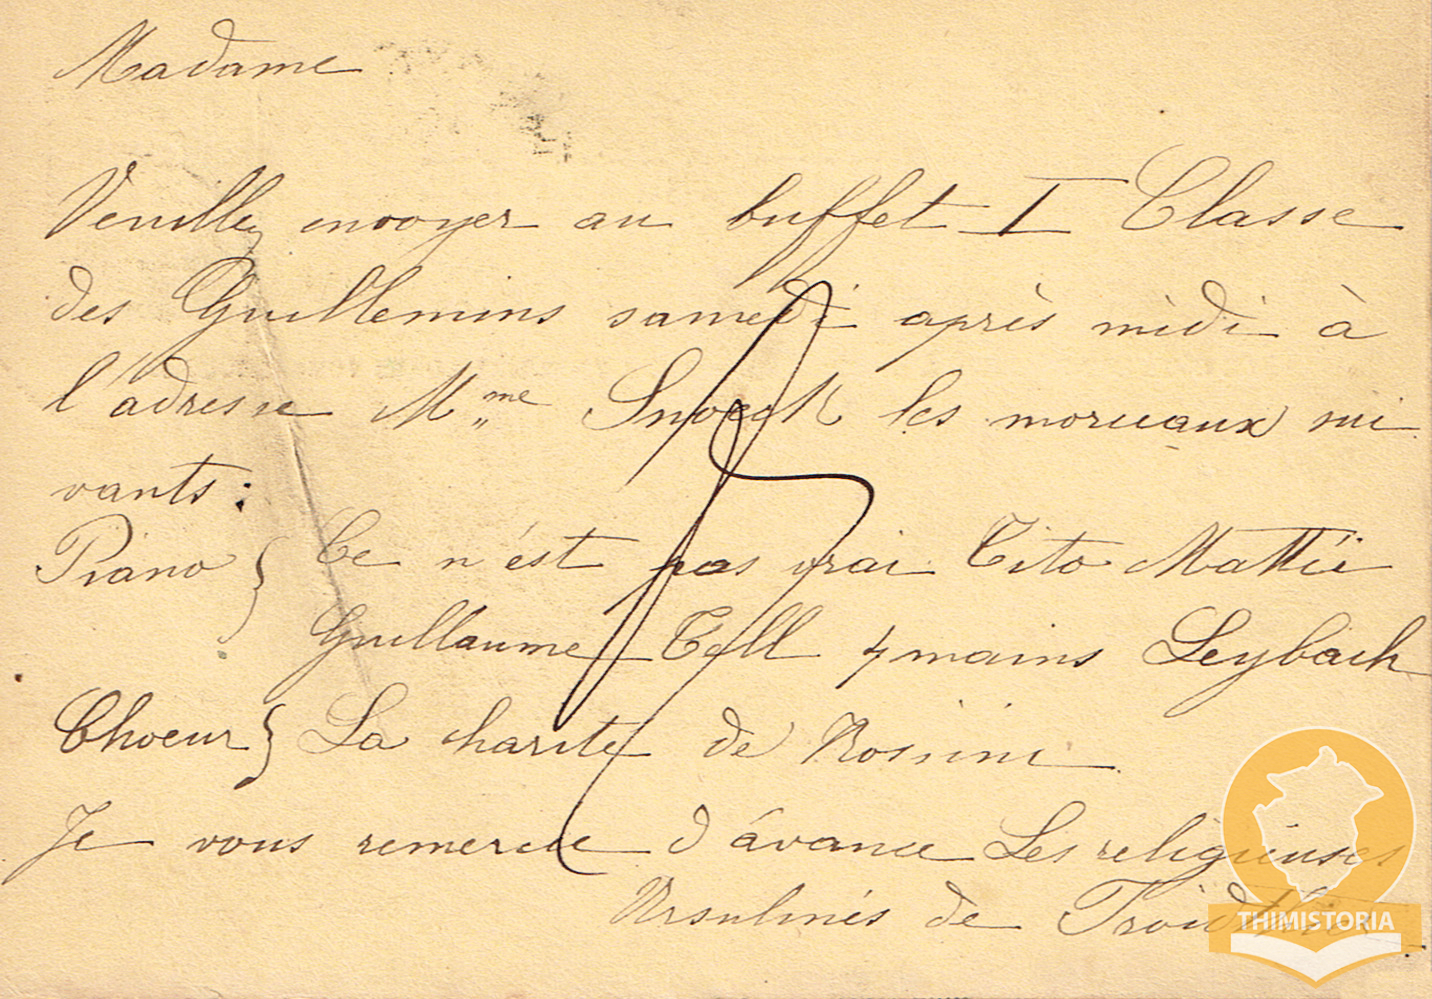 Madame
Veuillez envoyer au buffet I Classe
des Guillemins samedi après midi à
l'adresse Mme Snoeck les morceaux sui
vants :
Piano } Ce n'est pas vrai Tito Mattéi
Guillaume Tell 4 mains Leybach
Choeur } La charité de Rossini
Je vous remercie d'avance Les religieuses
Ursulines de
THIMISTORIA